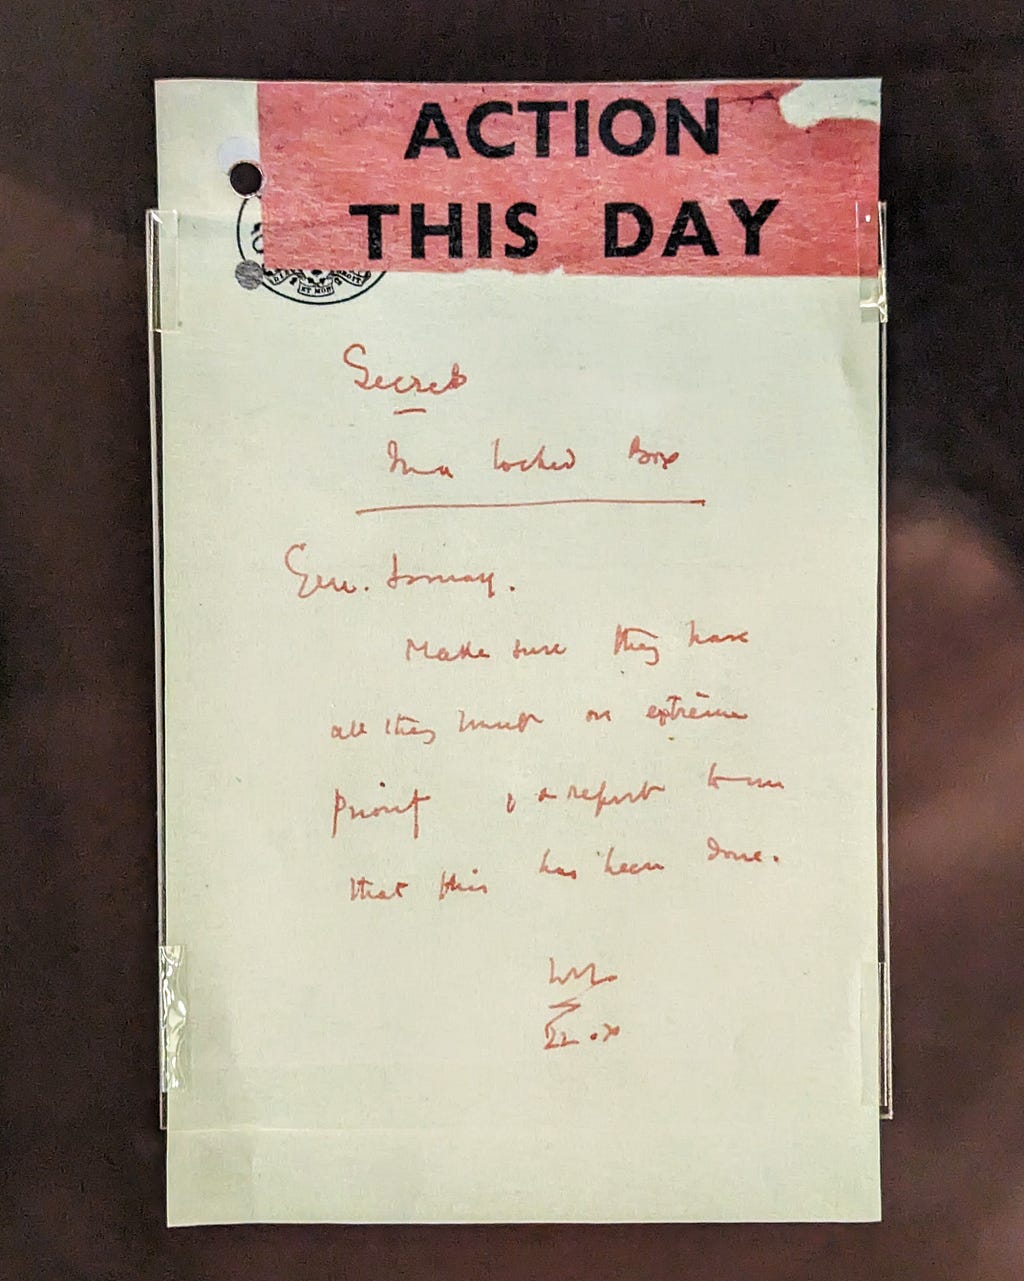 ACTION
THIS DAY
ET MON
Secret
In a locked Box
Gen. Ismay.
Make sure they have
all they want on extreme
priority & report to me
that this has been done.
WSC
22.x